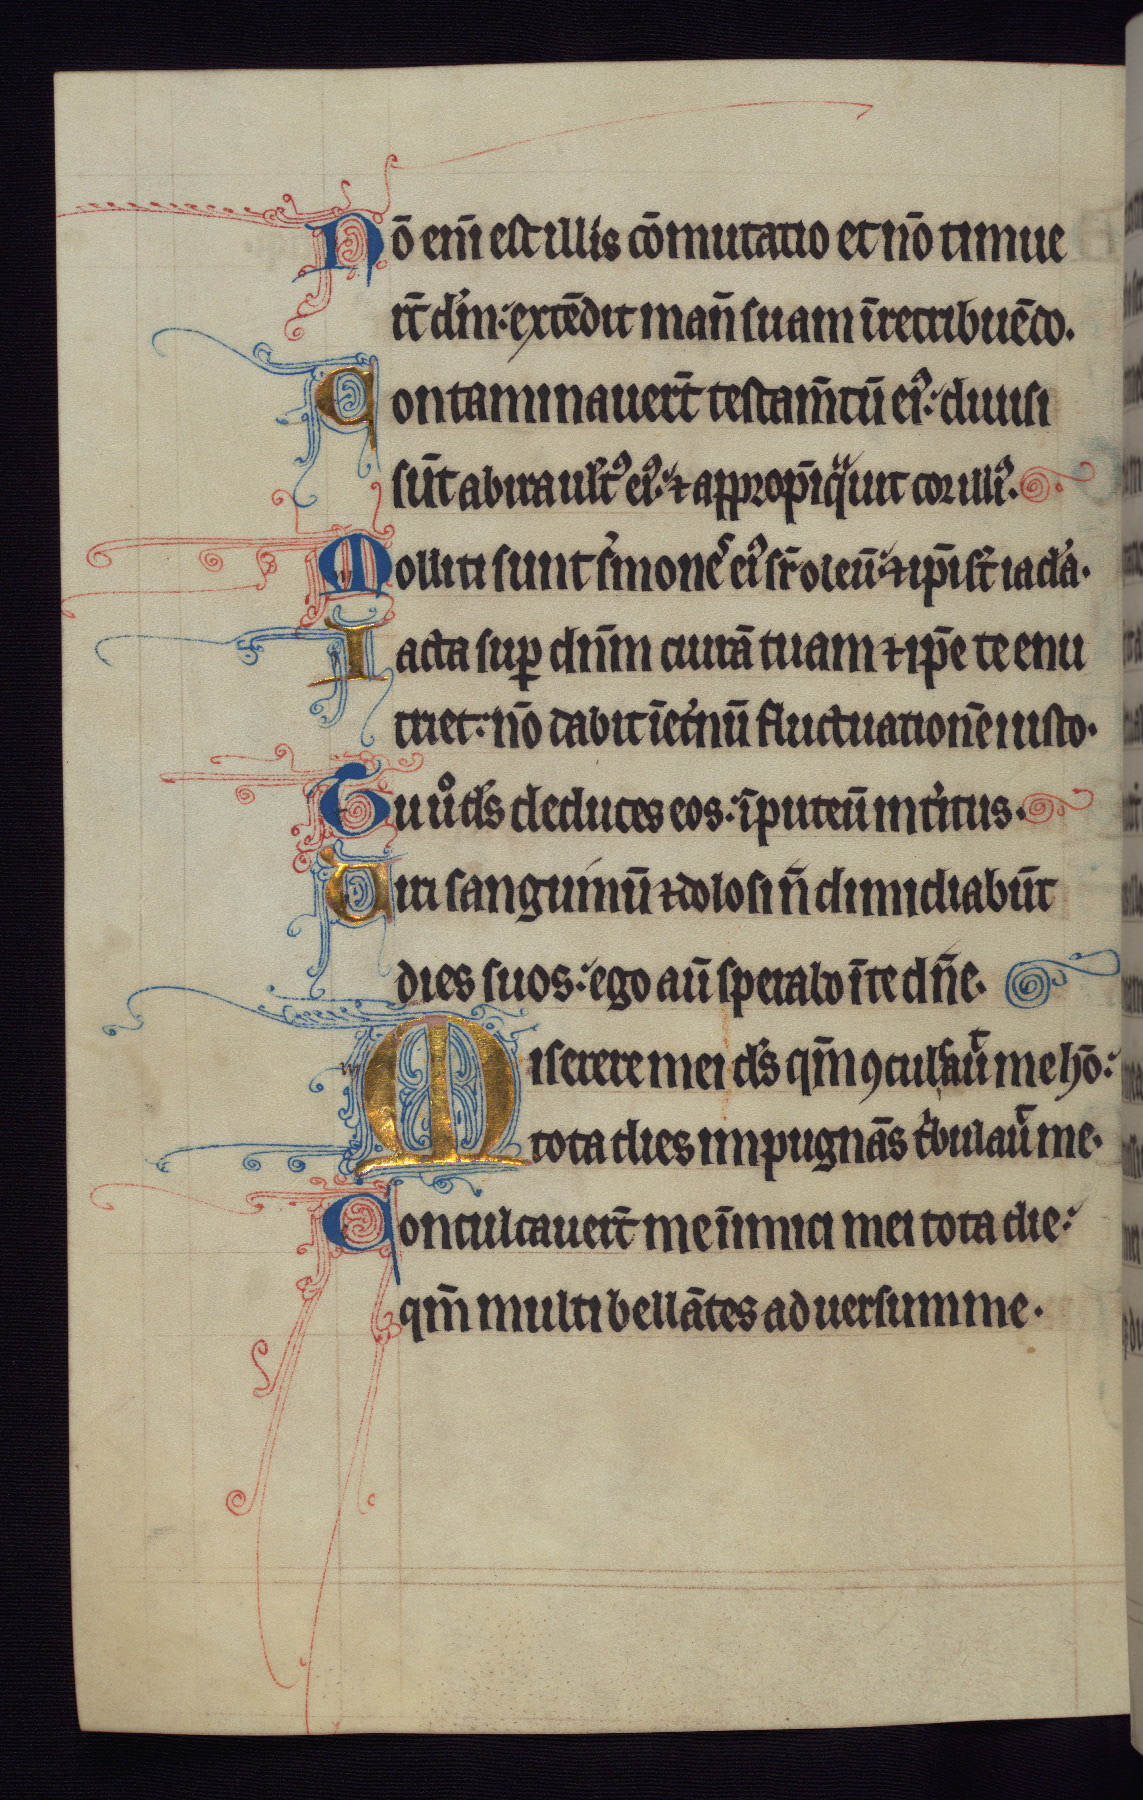 Nō em̄ est illis cōmutatio et nō timue
rt̄ dn̄m: extēdit man̄ suam ī retribuēdo.
Contaminauert̄ testam̄tū eiꝰ: diuisi
sūt ab ira uult̾ꝰ eiꝰ: ⁊ appropīq̈uit cor illiꝰ.
Molliti sunt s̾moneˢ eiꝰ sr̄ oleū: ⁊ ip̄i st̄ iacl̾a.
Iacta suꝑ dn̄m curā tuam ⁊ ip̄e te enu
triet: nō dabit ī et̾nū fluctuationē iusto.
Tu uͦ ds̄ deduces eos: ī puteū int̾itus.
Uiri sanguinū ⁊ dolosi n̄ dimidiabūt
dies suos: ego aū sperabo ī te dn̄e.
Miserere mei ds̄ qm̄ ꝯculcauͭ me hō:
tota dies impugnās t̾bulauͭ me.
Conculcauert̄ me inimici mei tota die:
qm̄ multi bellātes aduersum me.